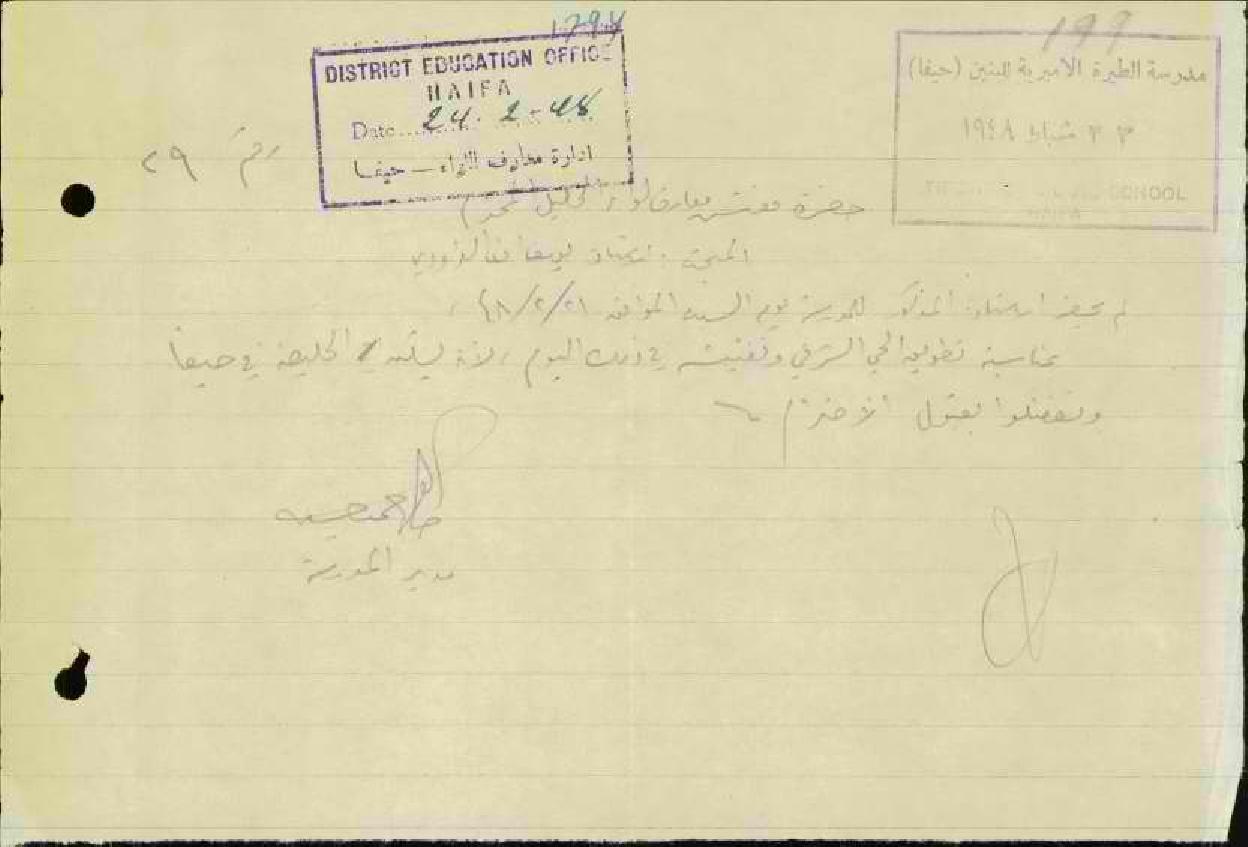 1794
DISTRICT EDUCATION OFFICE
HAIFA
Date.... 24. 2-48
ادارة معارف اللواء - حيفا
199
مدرسة الطيرة الاميرية للبنين (حيفا)
٢٣ شباط ١٩٤٨
SCHOOL
HAIFA
رقم ٢٩
حضرة مفتش معارف لواء الجليل المحترم
لم يحضر الاستاذ المذكور للمدرسة يوم السبت الموافق ٢١/٢/٤٨،
بمناسبة تطويق الحي الشرقي وتفتيشه في ذلك اليوم، لانه يسكن الحليصة في حيفا
وتفضلوا بقبول الاحترام
مدير المدرسة